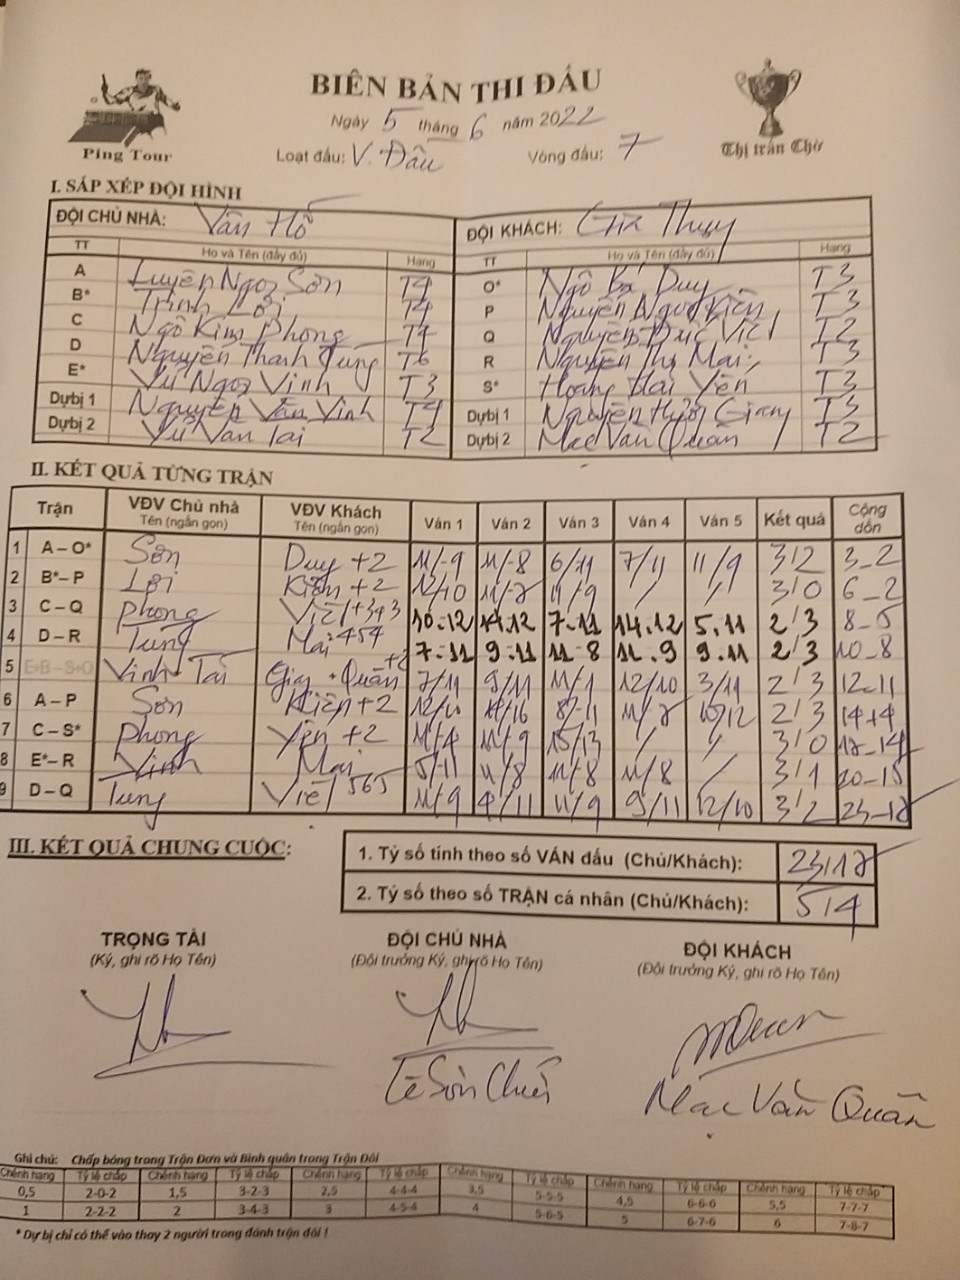 BIÊN BẢN THI ĐẤU
Ngày 5 tháng 6 năm 2022
Ping Tour
Loạt đấu: V. Đấu Vòng đấu: 7
Thị trấn Chờ
I. SẮP XẾP ĐỘI HÌNH
ĐỘI CHỦ NHÀ: Vân Hồ ĐỘI KHÁCH: Gia Thụy
TT Họ và Tên (đầy đủ) Hạng TT Họ và Tên (đầy đủ) Hạng
A Luyện Ngọc Sơn T4 O* Ngô Bá Duy T3
B* Trịnh Lợi T4 P Nguyễn Ngọc Kiên T3
C Ngô Kim Phong T4 Q Nguyễn Đức Việt T2
D Nguyễn Thanh Tùng T6 R Nguyễn Thị Mai T3
E* Vũ Ngọc Vinh T3 S* Hoàng Hải Yến T3
Dự bị 1 Nguyễn Văn Vinh T4 Dự bị 1 Nguyễn Hương Giang T3
Dự bị 2 Vũ Văn Tài T2 Dự bị 2 Mạc Văn Quân T2
II. KẾT QUẢ TỪNG TRẬN
Trận VĐV Chủ nhà Tên (ngắn gọn) VĐV Khách Tên (ngắn gọn) Ván 1 Ván 2 Ván 3 Ván 4 Ván 5 Kết quả Cộng dồn
1 A – O* Sơn Duy +2 11/-9 11/-8 6/11 7/11 11/9 3/2 3_2
2 B* – P Lợi Kiên +2 12/10 11/7 11/9 / / 3/0 6_2
3 C – Q Phong Việt +343 10-12 14.12 7-11 14.12 5.11 2/3 8-5
4 D – R Tùng Mai 454 7-11 9-11 11-8 11.9 9.11 2/3 10-8
5 E+B – S+O Vinh Tài Giang + Quân +2 7/11 9/11 11/1 12/10 3/11 2/3 12-11
6 A – P Sơn Kiên +2 12/10 14/16 8/-11 11/7 10/12 2/3 14+4
7 C – S* Phong Yến +2 11/4 11/9 15/13 / / 3/0 17_14
8 E* – R Vinh Mai 5/-11 11/8 11/8 11/8 / 3/1 20-15
9 D – Q Tùng Việt 565 11/9 4/11 11/9 9/11 12/10 3/2 23-17
III. KẾT QUẢ CHUNG CUỘC:
1. Tỷ số tính theo số VÁN đấu (Chủ/Khách): 23/17
2. Tỷ số theo số TRẬN cá nhân (Chủ/Khách): 5/4
TRỌNG TÀI ĐỘI CHỦ NHÀ ĐỘI KHÁCH
(Ký, ghi rõ Họ Tên) (Đội trưởng Ký, ghi rõ Họ Tên) (Đội trưởng Ký, ghi rõ Họ Tên)
Lê Sơn Mạc Văn Quân
Ghi chú: Chấp bóng trong Trận Đơn và Bình quân trong Trận Đôi
Chênh hạng Tỷ lệ chấp Chênh hạng Tỷ lệ chấp Chênh hạng Tỷ lệ chấp Chênh hạng Tỷ lệ chấp Chênh hạng Tỷ lệ chấp Chênh hạng Tỷ lệ chấp
0,5 2-0-2 1,5 3-2-3 2,5 4-4-4 3,5 5-5-5 4,5 6-6-6 5,5 7-7-7
1 2-2-2 2 3-4-3 3 4-5-4 4 5-6-5 5 6-7-6 6 7-8-7
* Dự bị chỉ có thể vào thay 2 người trong đánh trận đôi !